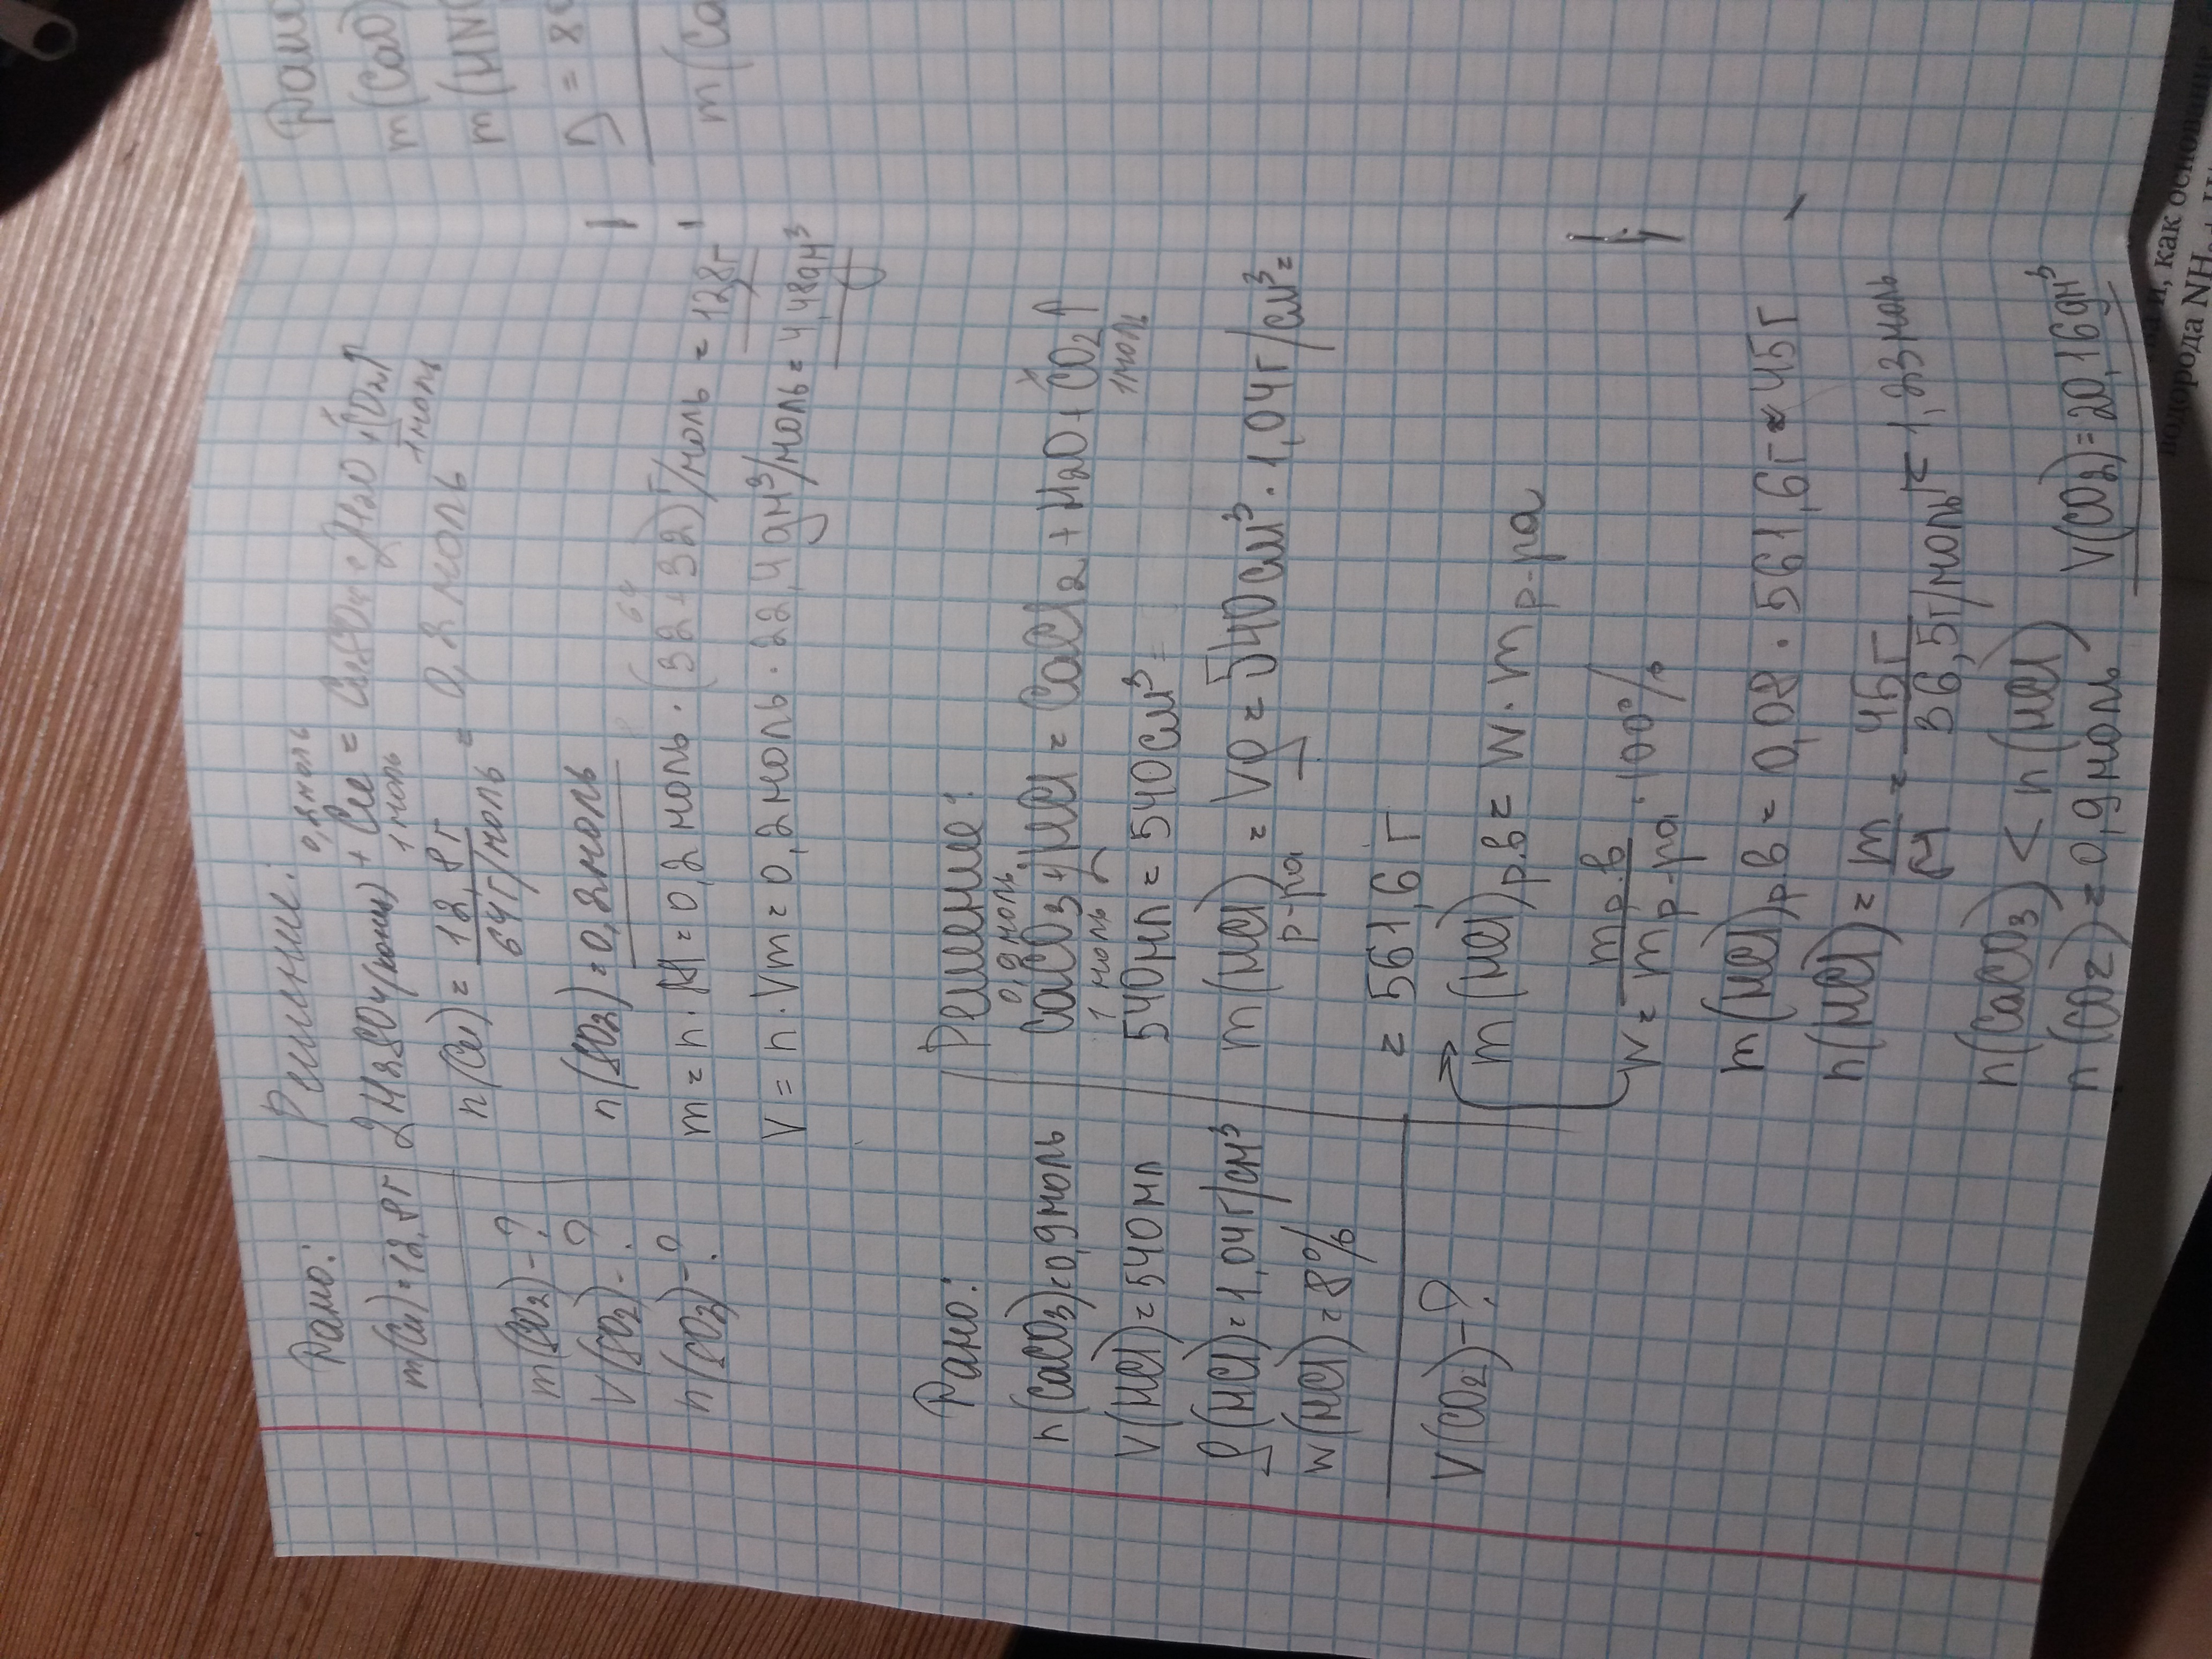 Дано:
m(Cu)=12,8г
m(SO2)-?
V(SO2)-?
n(SO2)-?
Решение:
0,2моль
2H2SO4(конц) + Cu = CuSO4+2H2O+SO2↑
1 моль 1моль
n(Cu) = 12,8г / 64г/моль = 0,2моль
n(SO2)=0,2моль
64
m = n·M=0,2 моль·(32+32)г/моль = 128г
V = n·Vm=0,2моль·22,4дм3/моль=4,48дм3
Дано:
n(CaCO3)=0,9моль
V(HCl)=540мл
ρ(HCl)=1,04г/см3
w(HCl)=8%
V(CO2)-?
Решение:
0,9моль
CaCO3+2HCl = CaCl2+H2O+CO2↑
1 моль 2 1моль
540мл=540см3=
m(HCl) р-ра = Vρ=540см3·1,04г/см3=
= 561,6г
m(HCl)р.в= w·m р-ра
w= m р.в / m р-ра ·100%
m(HCl)р.в=0,08·561,6г=45г
n(HCl)= m / M = 45г / 36,5г/моль = 1,23моль
n(CaCO3) < n(HCl)
n(CO2)=0,9моль V(CO2)=20,16дм3
Дано
m(CaO)
m(HNO
m(Ca
и, как основани
водорода NH